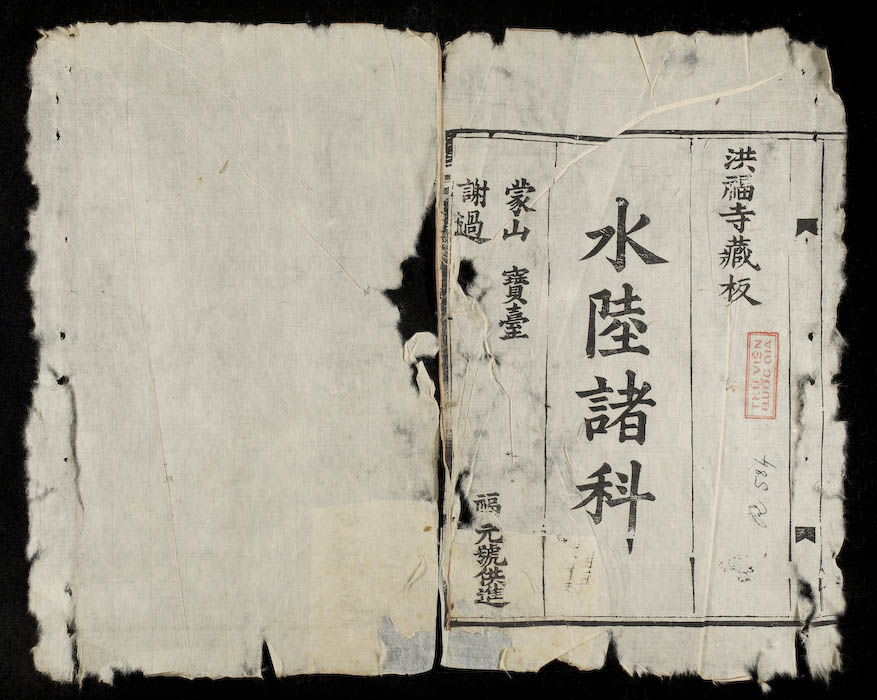 洪福寺藏板
水陸諸科
蒙山 寶臺
謝過
福
元號供進
THƯ VIỆN
QUỐC GIA
R 584